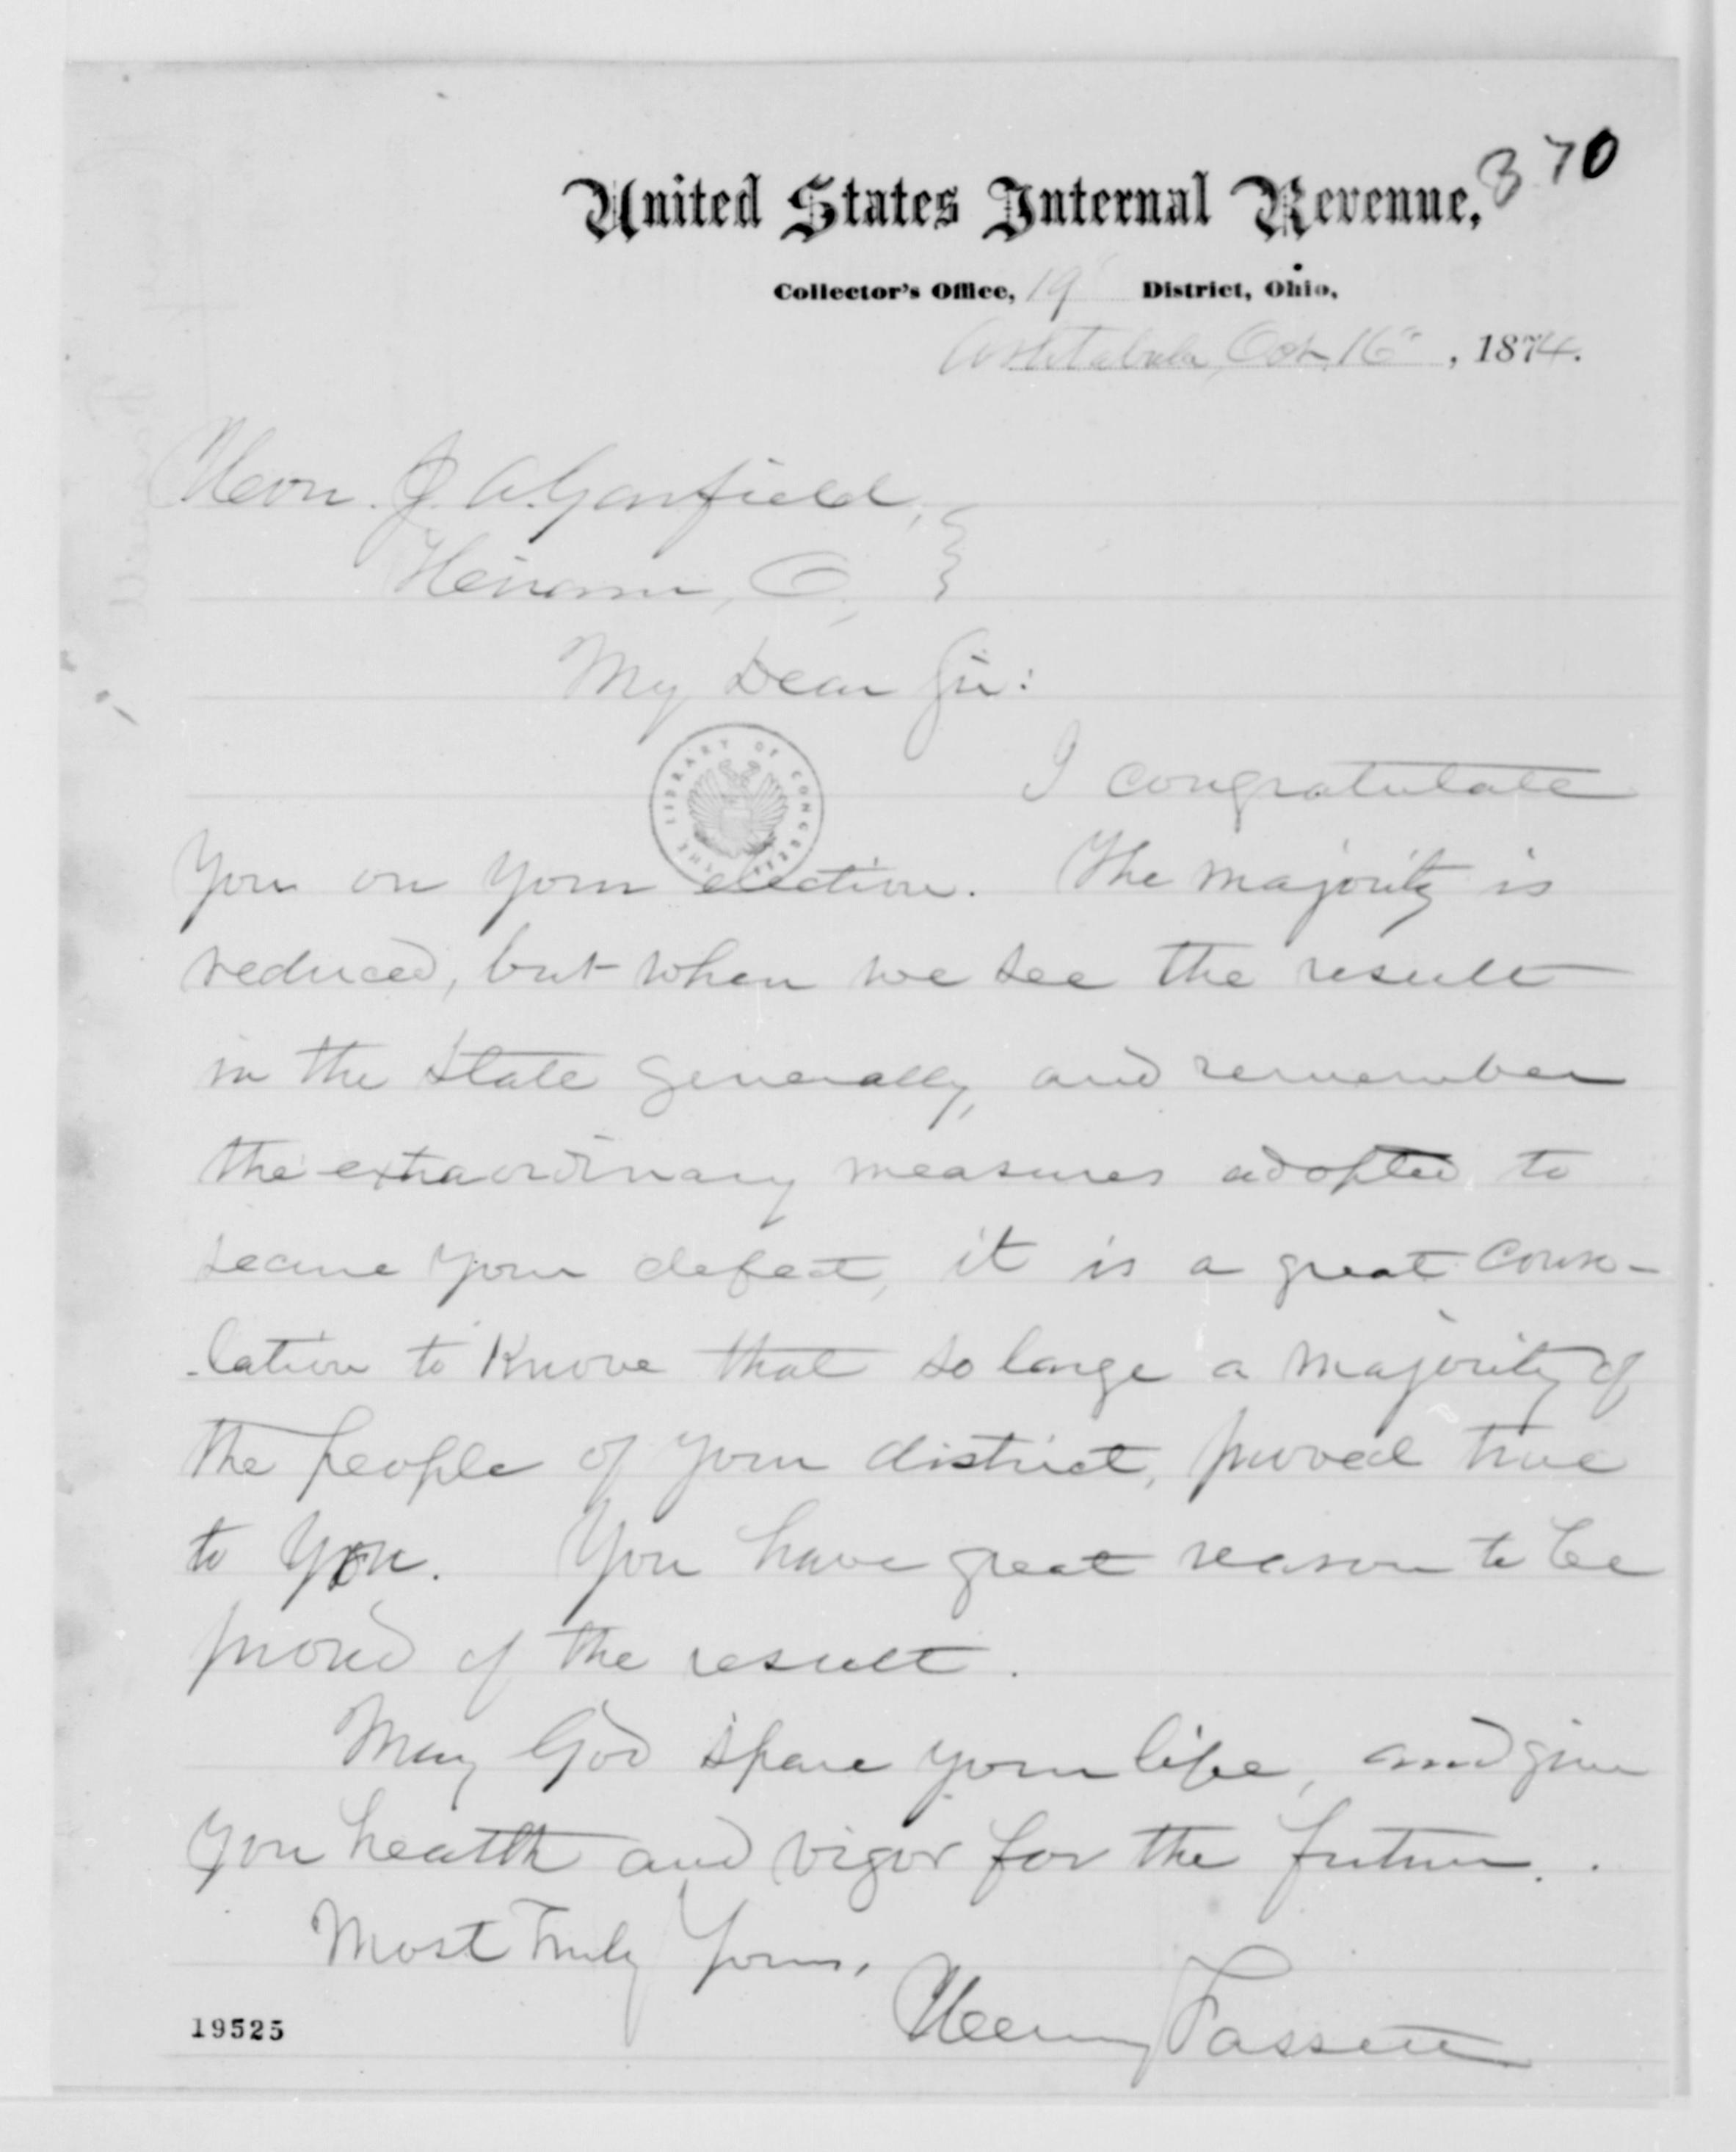 370
United States Internal Revenue,
Collector's Office, 19" District, Ohio,
Ashtabula, Oct. 16", 1874.
Hon. J. A. Garfield,
Hiram, O.,
My Dear Sir:
I congratulate
THE LIBRARY OF CONGRESS
you on your election. The majority is
reduced, but when we see the result
in the State generally, and remember
the extraordinary measures adopted to
secure your defeat, it is a great conso-
-lation to know that so large a majority of
the people of your district, proved true
to you. You have great reason to be
proud of the result.
May God spare your life, and give
you health and vigor for the future.
Most Truly Yours,
Henry Fassett
19525